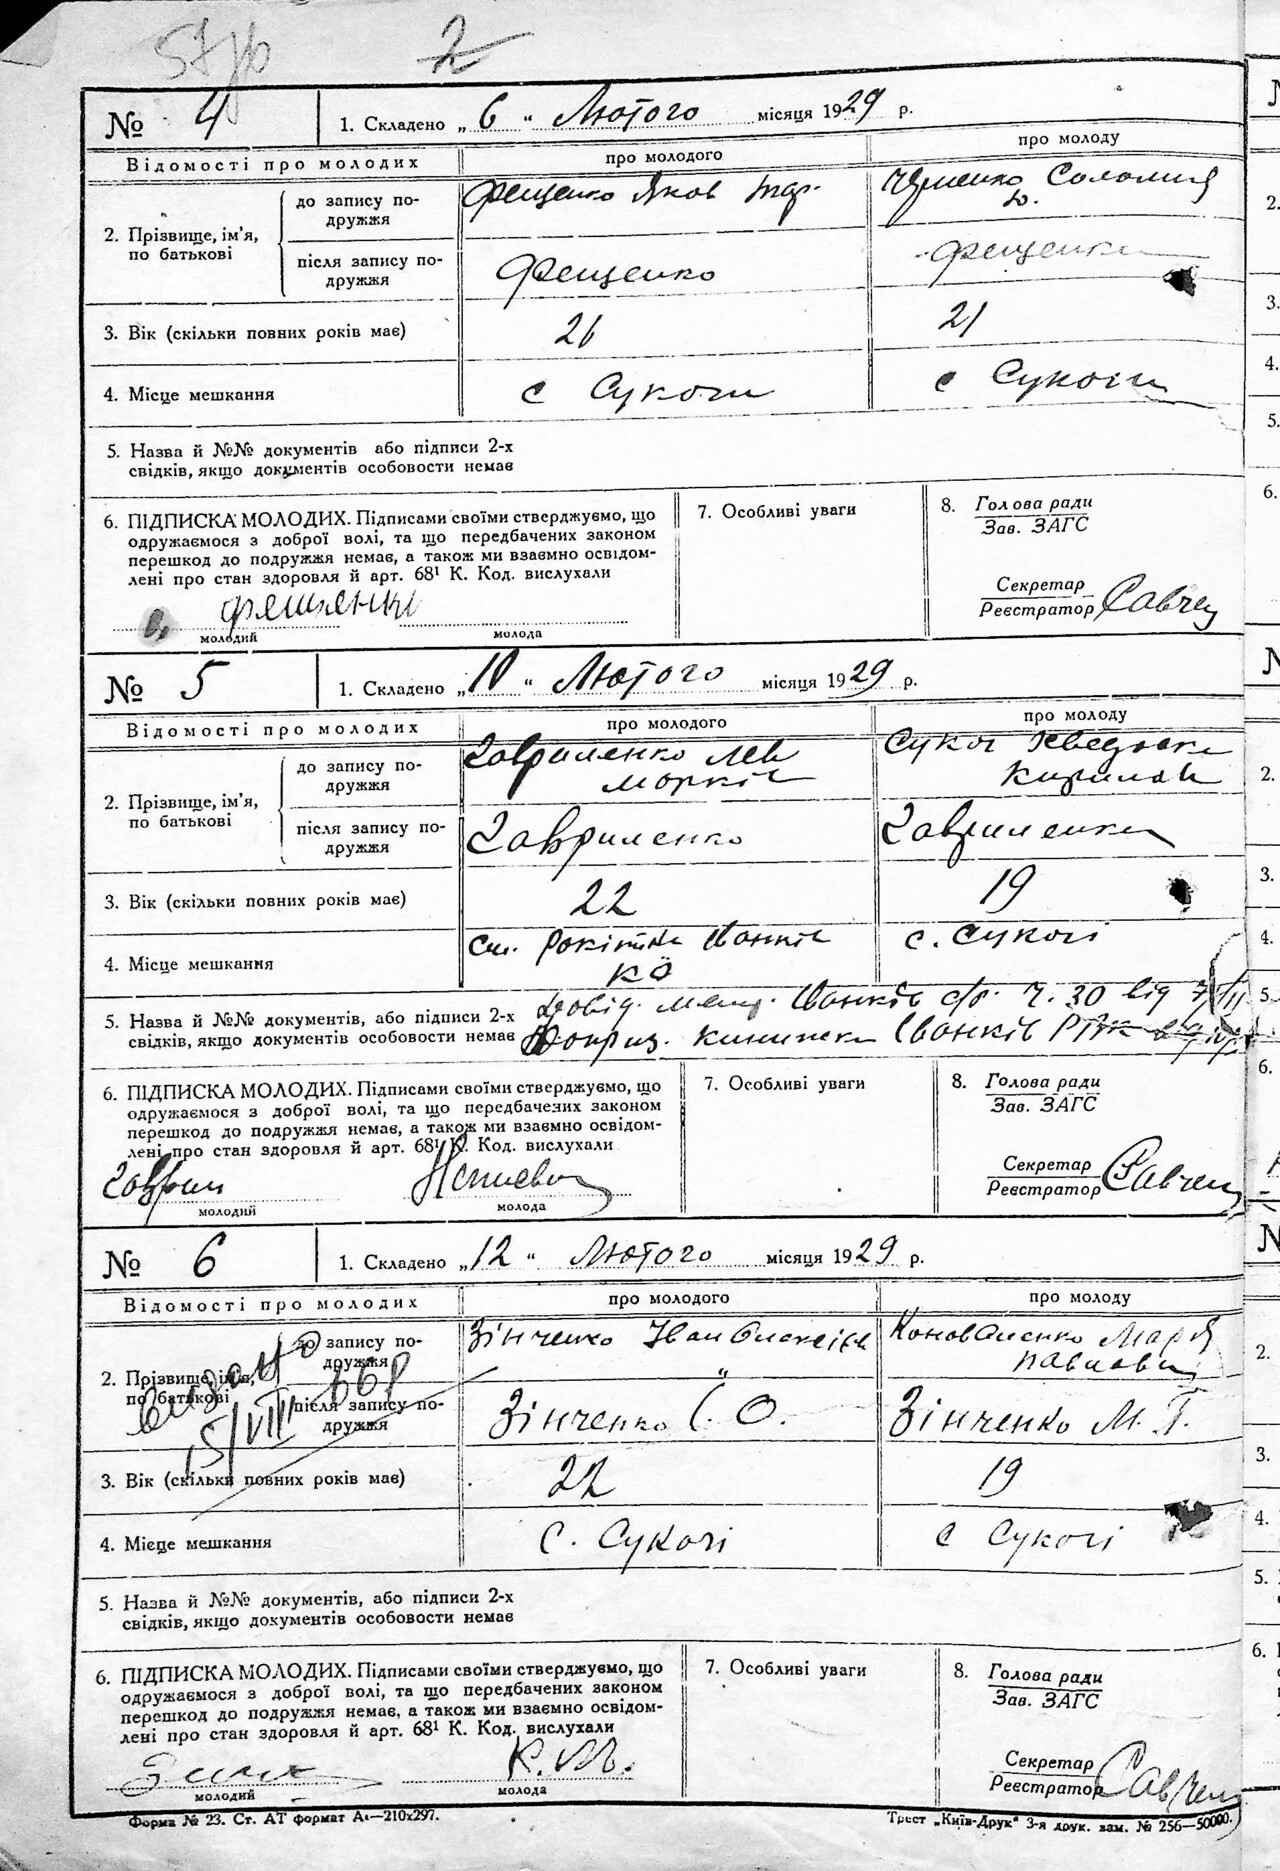 2
№ 4
1. Складено „6“ Лютого місяця 1929 р.
Відомості про молодих
про молодого
про молоду
2. Прізвище, ім'я, по батькові
до запису по-
дружжя
Фещенко Яков
Соломия
після запису по-
дружжя
Фещенко
Фещенко
3. Вік (скільки повних років має)
26
21
4. Місце мешкання
с Сукочи
с Сукочи
5. Назва й №№ документів або підписи 2-х
свідків, якщо документів особовости немає
6. ПІДПИСКА МОЛОДИХ. Підписами своїми стверджуємо, що
одружаємося з доброї волі, та що передбачених законом
перешкод до подружжя немає, а також ми взаємно освідом-
лені про стан здоровля й арт. 68¹ К. Код. вислухали
молодий
молода
7. Особливі уваги
8. Голова ради
Зав. ЗАГС
Секретар
Реєстратор
№ 5
1. Складено „10“ Лютого місяця 1929 р.
Відомості про молодих
про молодого
про молоду
2. Прізвище, ім'я,
по батькові
до запису по-
дружжя
Гавриленко Лев
Сукач
після запису по-
дружжя
Гавриленко
Гавриленко
3. Вік (скільки повних років має)
22
19
4. Місце мешкання
с. Сукочі
5. Назва й №№ документів, або підписи 2-х
свідків, якщо документів особовости немає
Іванків с/р. Ч. 30 від
Іванків РВК
6. ПІДПИСКА МОЛОДИХ. Підписами своїми стверджуємо, що
одружаємося з доброї волі, та що передбачених законом
перешкод до подружжя немає, а також ми взаємно освідом-
лені про стан здоровля й арт. 68¹ К. Код. вислухали
Гаврил
молодий
молода
7. Особливі уваги
8. Голова ради
Зав. ЗАГС
Секретар
Реєстратор
№ 6
1. Складено „12“ Лютого місяця 1929 р.
Відомості про молодих
про молодого
про молоду
2. Прізвище, ім'я,
по батькові
до запису по-
дружжя
Зінченко Іван Олексієв
Коноваленко Марія
Павлови
після запису по-
дружжя
Зінченко І. О.
Зінченко М. П.
видано
15/VIII
3. Вік (скільки повних років має)
22
19
4. Місце мешкання
с. Сукочі
с Сукочі
5. Назва й №№ документів, або підписи 2-х
свідків, якщо документів особовости немає
6. ПІДПИСКА МОЛОДИХ. Підписами своїми стверджуємо, що
одружаємося з доброї волі, та що передбачених законом
перешкод до подружжя немає, а також ми взаємно освідом-
лені про стан здоровля й арт. 68¹ К. Код. вислухали
К. М.
молодий
молода
7. Особливі уваги
8. Голова ради
Зав. ЗАГС
Секретар
Реєстратор
Форма № 23. Ст. АТ формат А₄—210х297.
Трест „Київ-Друк“ 3-я друк. зам. № 256—50000.